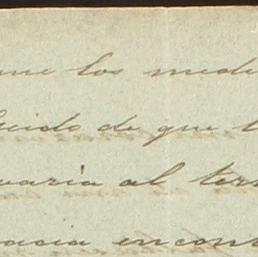 me los medi
cido de que l
uaria al ter
acia encont